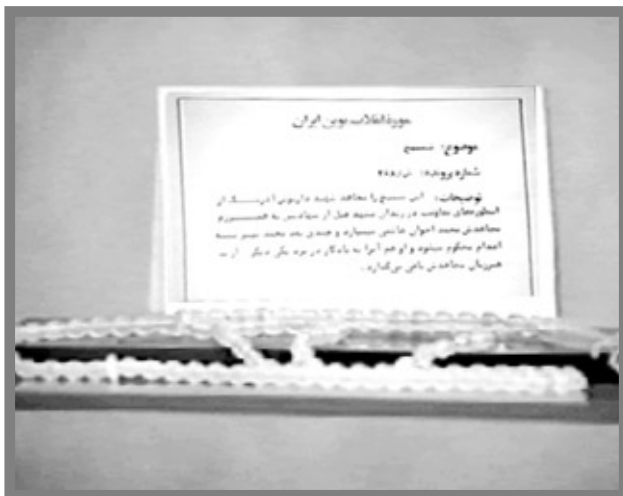 موزهٔ انقلاب نوین ایران
موضوع: تسبیح
شماره پرونده:
توضیحات: این تسبیح را مجاهد شهید داریوش از
اسطوره‌های مقاومت در زندان مشهد قبل از شهادتش به همرزم
مجاهدش محمد اخوان هاشمی میسپارد و چندی بعد محمد نیز به
اعدام محکوم میشود و او هم آنرا به یادگار در نزد یکی دیگر از
همرزمان مجاهدش باقی می‌گذارد.